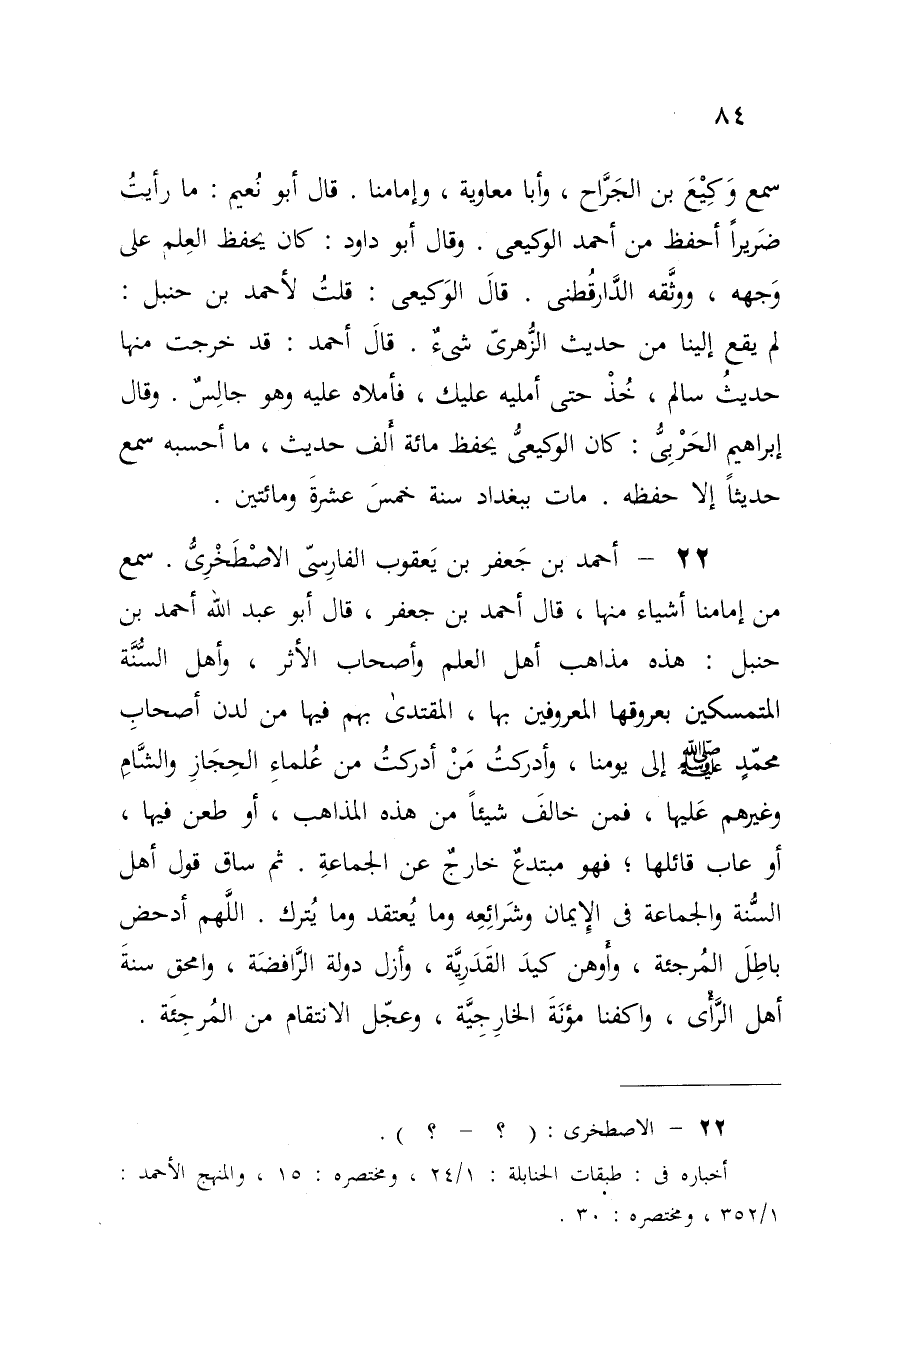 ٨٤
سمع وَكِيْعَ بن الجَرَّاح ، وأبا معاوية ، وإمامنا . قال أبو نُعيم : ما رأيتُ
ضَريراً أحفظ من أحمد الوكيعى . وقال أبو داود : كان يحفظ العِلم على
وَجهه ، ووثَّقه الدَّارقُطنى . قالَ الوَكيعى : قلتُ لأحمد بن حنبل :
لم يقع إلينا من حديث الزُّهرىّ شىءٌ . قالَ أحمد : قد خرجت منها
حديثُ سالم ، خُذْ حتى أمليه عليك ، فأملاه عليه وهو جالِسٌ . وقال
إبراهيم الحَرْبِىُّ : كان الوكيعىُّ يحفظ مائة أَلف حديث ، ما أحسبه سمع
حديثاً إلا حفظه . مات ببغداد سنة خمسَ عشرةَ ومائتين .
٢٢ – أحمد بن جَعفر بن يَعقوب الفارِسىّ الاصْطَخْرِىُّ . سمع
من إمامنا أشياء منها ، قال أحمد بن جعفر ، قال أبو عبد الله أحمد بن
حنبل : هذه مذاهب أهل العلم وأصحاب الأثر ، وأهل السُّنَّة
المتمسكين بعروقها المعروفين بها ، المقتدىٰ بهم فيها من لدن أصحابِ
محمّدٍ ﷺ إلى يومنا ، وأدركتُ مَنْ أدركتُ من عُلماءِ الحِجَازِ والشَّامِ
وغيرهم عَليها ، فمن خالفَ شيئاً من هذه المذاهب ، أو طعن فيها ،
أو عاب قائلها ؛ فهو مبتدعٌ خارجٌ عن الجماعةِ . ثم ساق قول أهل
السُّنة والجماعة فى الإيمان وشَرائِعِه وما يُعتقد وما يُترك . اللَّهم أدحض
باطِلَ المُرجئة ، وأَوهن كيدَ القَدَرِيَّة ، وأزل دولة الرَّافضَة ، وامحق سنةَ
أهل الرَّأْى ، واكفنا مؤنَةَ الخارِجِيَّة ، وعجّل الانتقام من المُرجِئَة .
٢٢ – الاصطخرى : ( ؟ – ؟ ) .
أخباره فى : طبقات الحنابلة : ٢٤/١ ، ومختصره : ١٥ ، والمنهج الأحمد :
٣٥٢/١ ، ومختصره : ٣٠ .